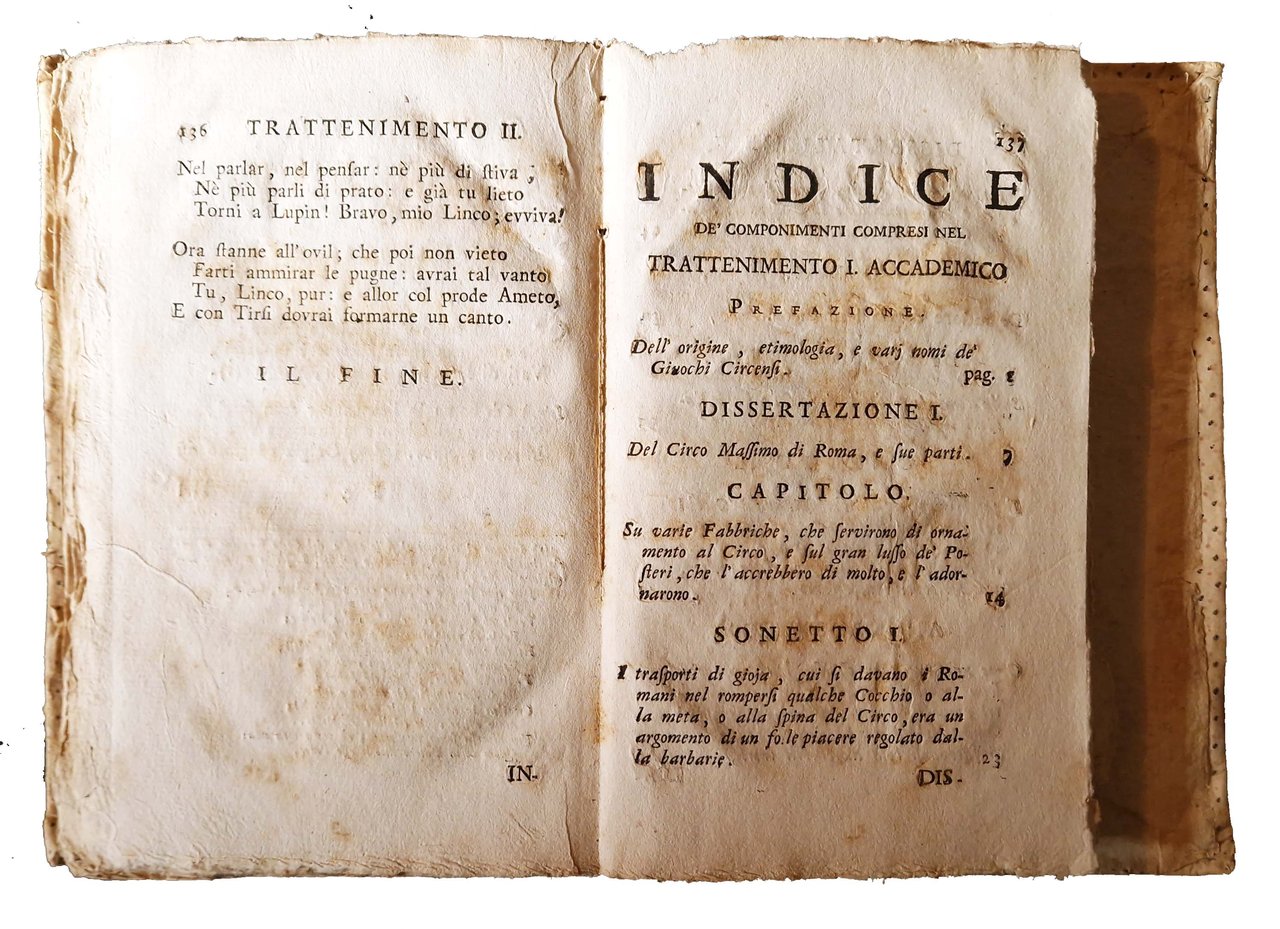 136 TRATTENIMENTO II.
Nel parlar, nel penſar: nè più di ſtiva;
Nè più parli di prato: e già tu lieto
Torni a Lupin! Bravo, mio Linco; evviva!
Ora ſtanne all'ovil; che poi non vieto
Farti ammirar le pugne: avrai tal vanto
Tu, Linco, pur: e allor col prode Ameto,
E con Tirſi dovrai formarne un canto.
IL FINE.
IN-
137
INDICE
DE' COMPONIMENTI COMPRESI NEL
TRATTENIMENTO I. ACCADEMICO
PREFAZIONE.
Dell' origine, etimologia, e varj nomi de'
Giuochi Circenſi. pag. 1
DISSERTAZIONE I.
Del Circo Maſſimo di Roma, e ſue parti. 9
CAPITOLO.
Su varie Fabbriche, che ſervirono di orna-
mento al Circo, e ſul gran luſſo de' Po-
ſteri, che l'accrebbero di molto, e l'ador-
narono. 14
SONETTO I.
I traſporti di gioja, cui ſi davano i Ro-
mani nel romperſi qualche Cocchio o al-
la meta, o alla ſpina del Circo, era un
argomento di un fo.le piacere regolato dal-
la barbarie. 23
DIS-